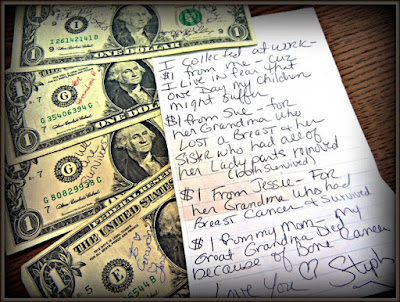 1
I 26142141 B
ONE DOLLAR
1
7
G
G 35406394 C
7
G
G 80829938 C
7
Survivors
THE UNITED STATES OF AMERICA
E
ONE DOLLAR
I collected at work-
$1 from me - cuz
I live in fear that
One Day my children
might suffer
$1 from Sue - for
her Grandma who
Lost a Breast & her
Sister who had all of
her Lady parts removed
(both survived)
$1 From Jessie - For
her Grandma who had
Breast Cancer & Survived
$1 from my Mom - my
Great Grandma Died
because of Bone Cancer
Love You ♡ Steph